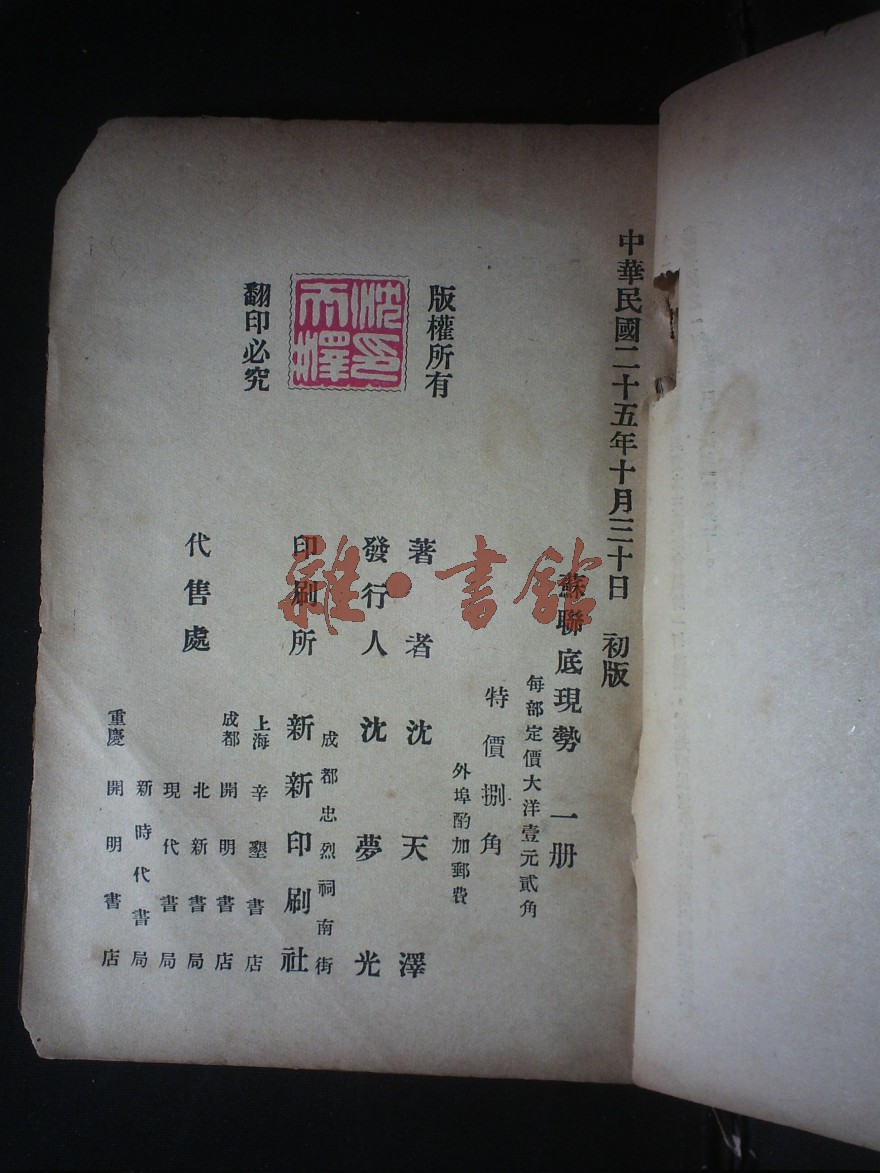 中華民國二十五年十月三十日 初版
蘇聯底現勢 一册
每部定價大洋壹元貳角
特價捌角
外埠酌加郵費
版權所有
沈印天澤
翻印必究
著者 沈天澤
發行人 沈夢光
成都忠烈祠南街
印刷所 新新印刷社
代售處
上海 辛墾書店
成都 開明書店
北新書局
現代書局
新時代書局
重慶 開明書店
雜·書館